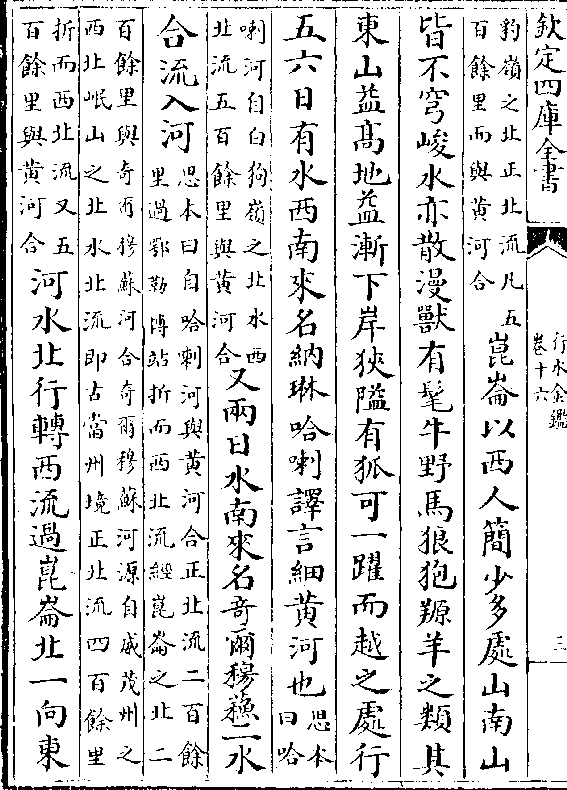 欽定四庫全書
行水金鑑
卷十六
三
豹嶺之北正北流凡五
百餘里而與黃河合
崑崙以西人簡少多處山南山
皆不穹峻水亦散漫獸有髦牛野馬狼狍羱羊之類其
東山益高地益漸下岸狹隘有狐可一躍而越之處行
五六日有水西南來名納琳哈喇譯言細黃河也
思本
曰哈
喇河自白狗嶺之北水西
北流五百餘里與黃河合
又兩日水南來名奇爾穆蘓二水
合流入河
思本曰自哈喇河與黃河合正北流二百餘
里過鄂勒博站折而西北流經崑崙之北二
百餘里與奇爾穆蘇河合奇爾穆蘇河源自威茂州之
西北岷山之北水北流即古當州境正北流四百餘里
折而西北流又五
百餘里與黃河合
河水北行轉西流過崑崙北一向東